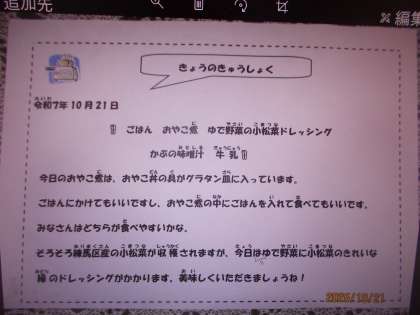 追加先
編集
きょうのきゅうしょく
令和7年10月21日
ごはん おやこ煮 ゆで野菜の小松菜ドレッシング
かぶの味噌汁 牛乳
今日のおやこ煮は、おやこ丼の具がグラタン皿に入っています。
ごはんにかけてもいいですし、おやこ煮の中にごはんを入れて食べてもいいです。
みなさんはどちらが食べやすいかな。
そろそろ練馬区産の小松菜が収穫されますが、今日はゆで野菜に小松菜のきれいな
緑のドレッシングがかかります。美味しくいただきましょうね！
2025/10/21